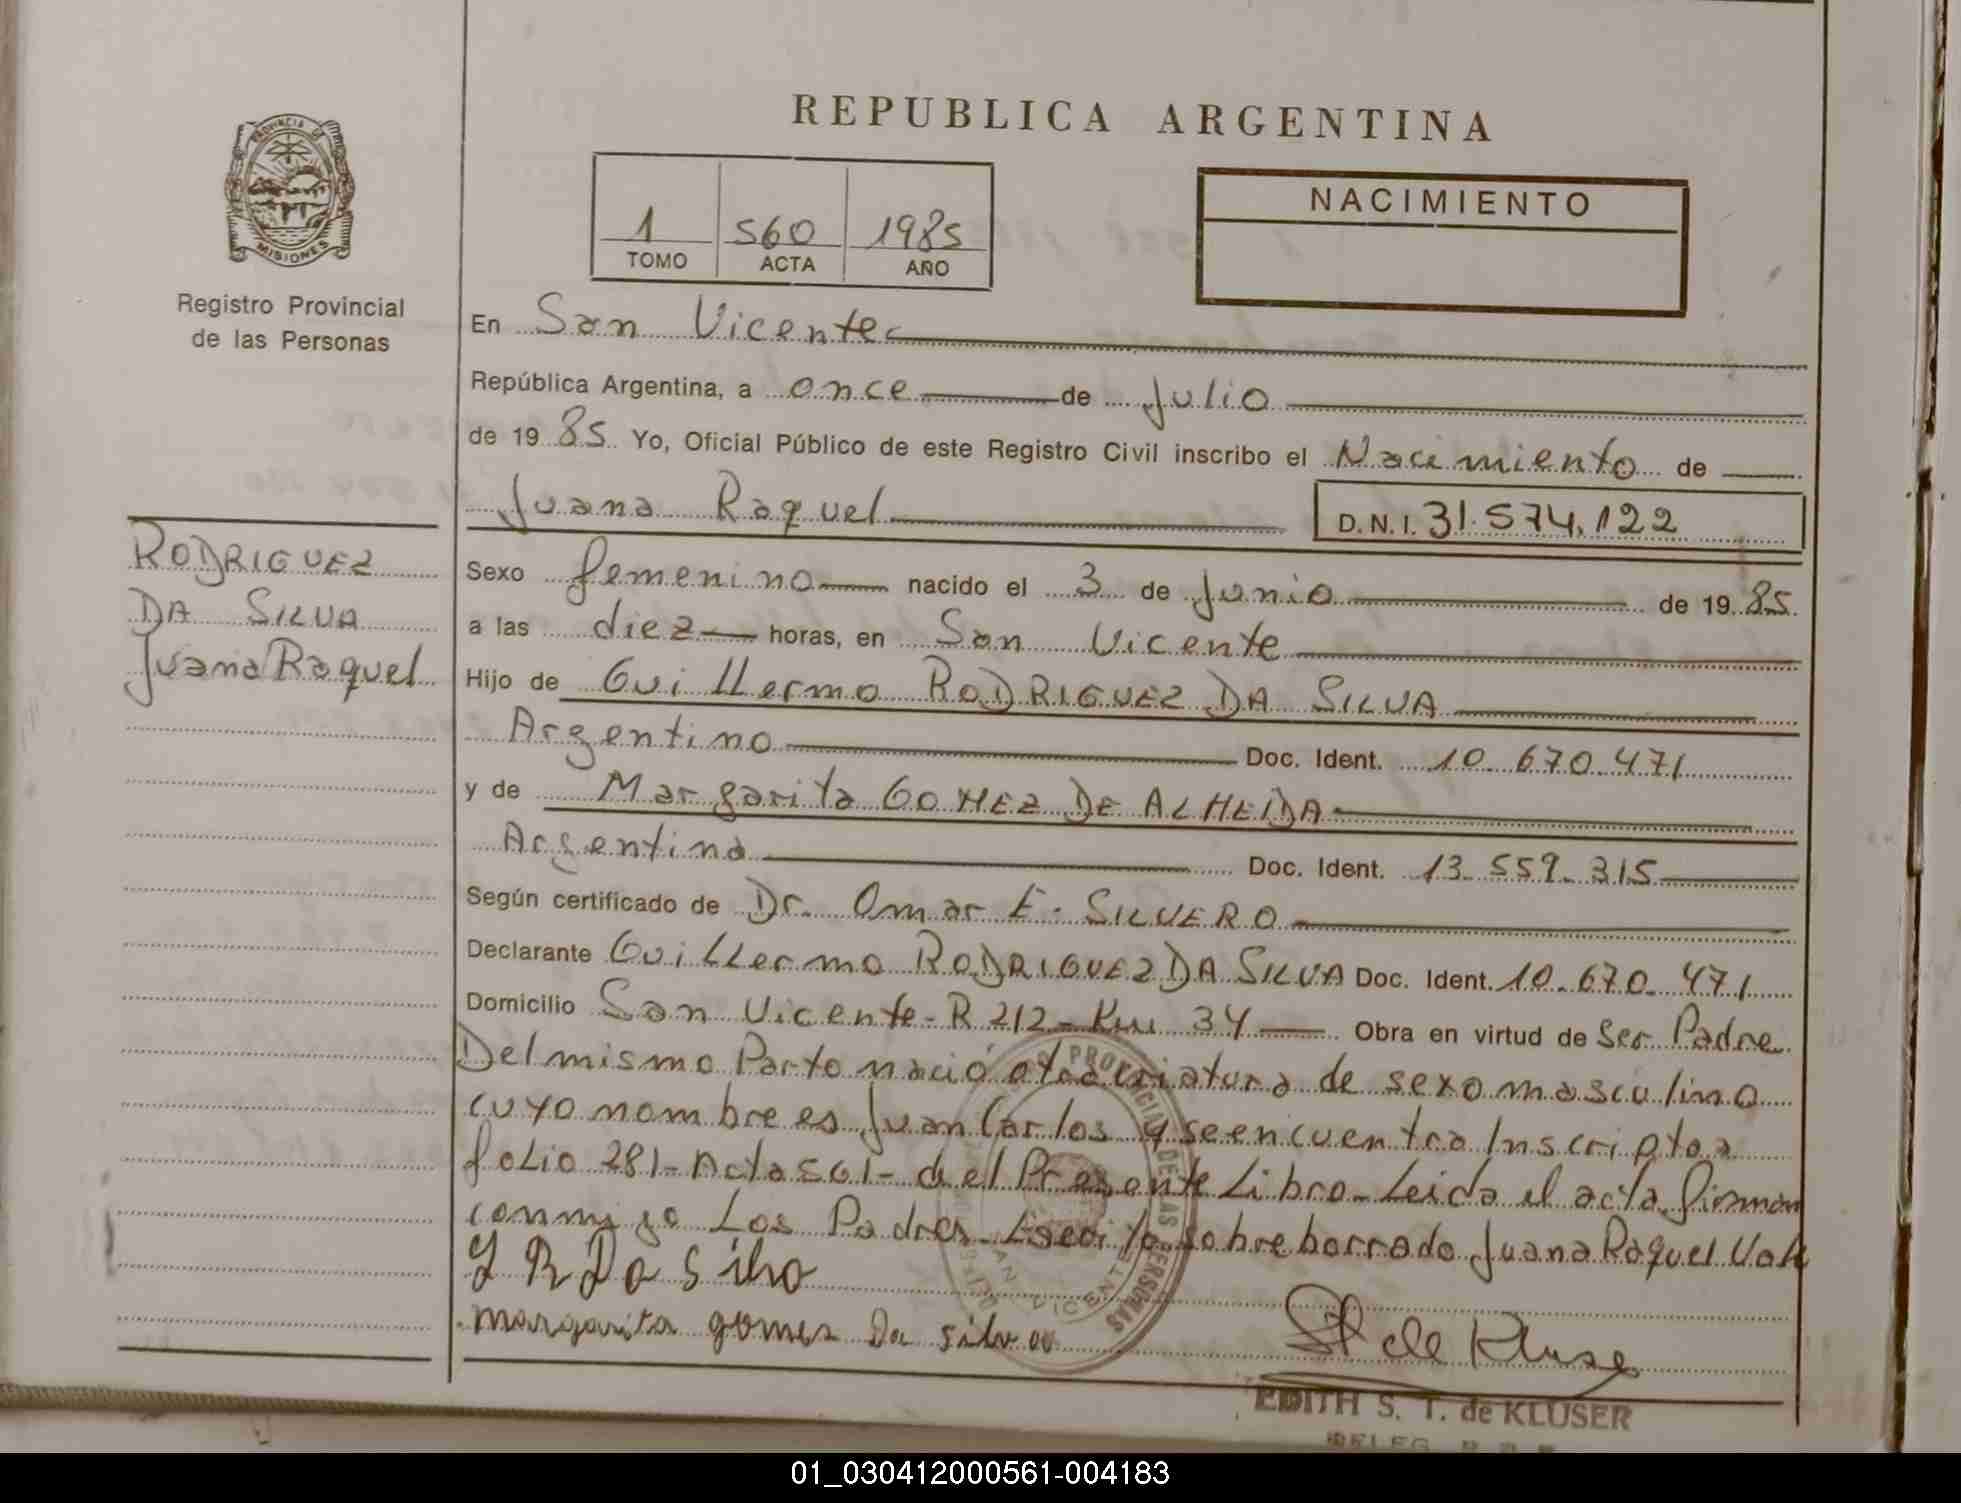 REPUBLICA ARGENTINA
PROVINCIA DE
MISIONES
Registro Provincial
de las Personas
1 560 1985
TOMO ACTA AÑO
NACIMIENTO
En San Vicente
República Argentina, a once de Julio
de 1985 Yo, Oficial Público de este Registro Civil inscribo el Nacimiento de
Juana Raquel D.N.I. 31.574.122
RODRIGUEZ
DA SILVA
Juana Raquel
Sexo femenino nacido el 3 de Junio de 1985.
a las diez horas, en San Vicente
Hijo de Guillermo RODRIGUEZ DA SILVA
Argentino Doc. Ident. 10.670.471
y de Margarita GOMEZ DE ALMEIDA
Argentina Doc. Ident. 13.559.315
Según certificado de Dr. Omar E. SILVERO
Declarante Guillermo RODRIGUEZ DA SILVA Doc. Ident. 10.670.471
Domicilio San Vicente - R 212 - Km 34 Obra en virtud de Ser Padre
Del mismo Parto nació otra criatura de sexo masculino
cuyo nombre es Juan Carlos y se encuentra Inscripto a
folio 281 - Acta 561 - del Presente Libro - Leida el acta firman
conmigo Los Padres - Escrito sobre borrado Juana Raquel Vale
G R Da Silva
margarita gomes Da silva
PROVINCIAL DE LAS PERSONAS
SAN VICENTE
de Kluser
EDITH S. T. de KLUSER
DELEG.
01_030412000561-004183